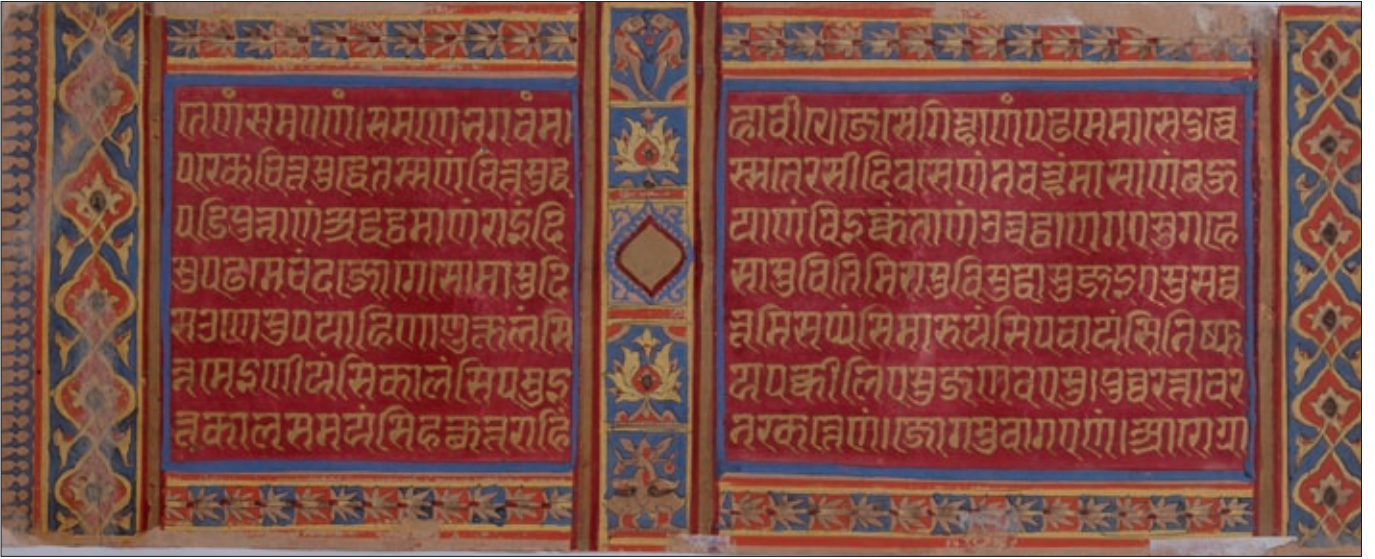 तेणं समएणं। समणे भगवं म हावीरे जे से गिम्हाणं पढमे मासे दुच्चे
पक्खे चित्तसुद्धे तस्स णं चित्तसुद्ध स्स तेरसीदिवसेणं नवण्हं मासाणं बहु
पडिपुन्नाणं अद्धट्ठमाणं राइंदि याणं विइक्कंताणं उच्चट्ठाणगएसु गहे
सु पढमे चंदजोगे सोमासु दि सासु वितिमिरासु विसुद्धासु जइएसु सव्व
सउणेसु पयाहिणाणुकूलंसि भूमिसप्पंसि मारुयंसि पवायंसि निप्फ
न्नमेइणीयंसि कालंसि पमुइ यपक्कीलिएसु जणवएसु पुव्वरत्तावर
त्तकालसमयंसि हत्थुत्तराहिं नक्खत्तेणं जोगमुवागएणं। आरोग्गा